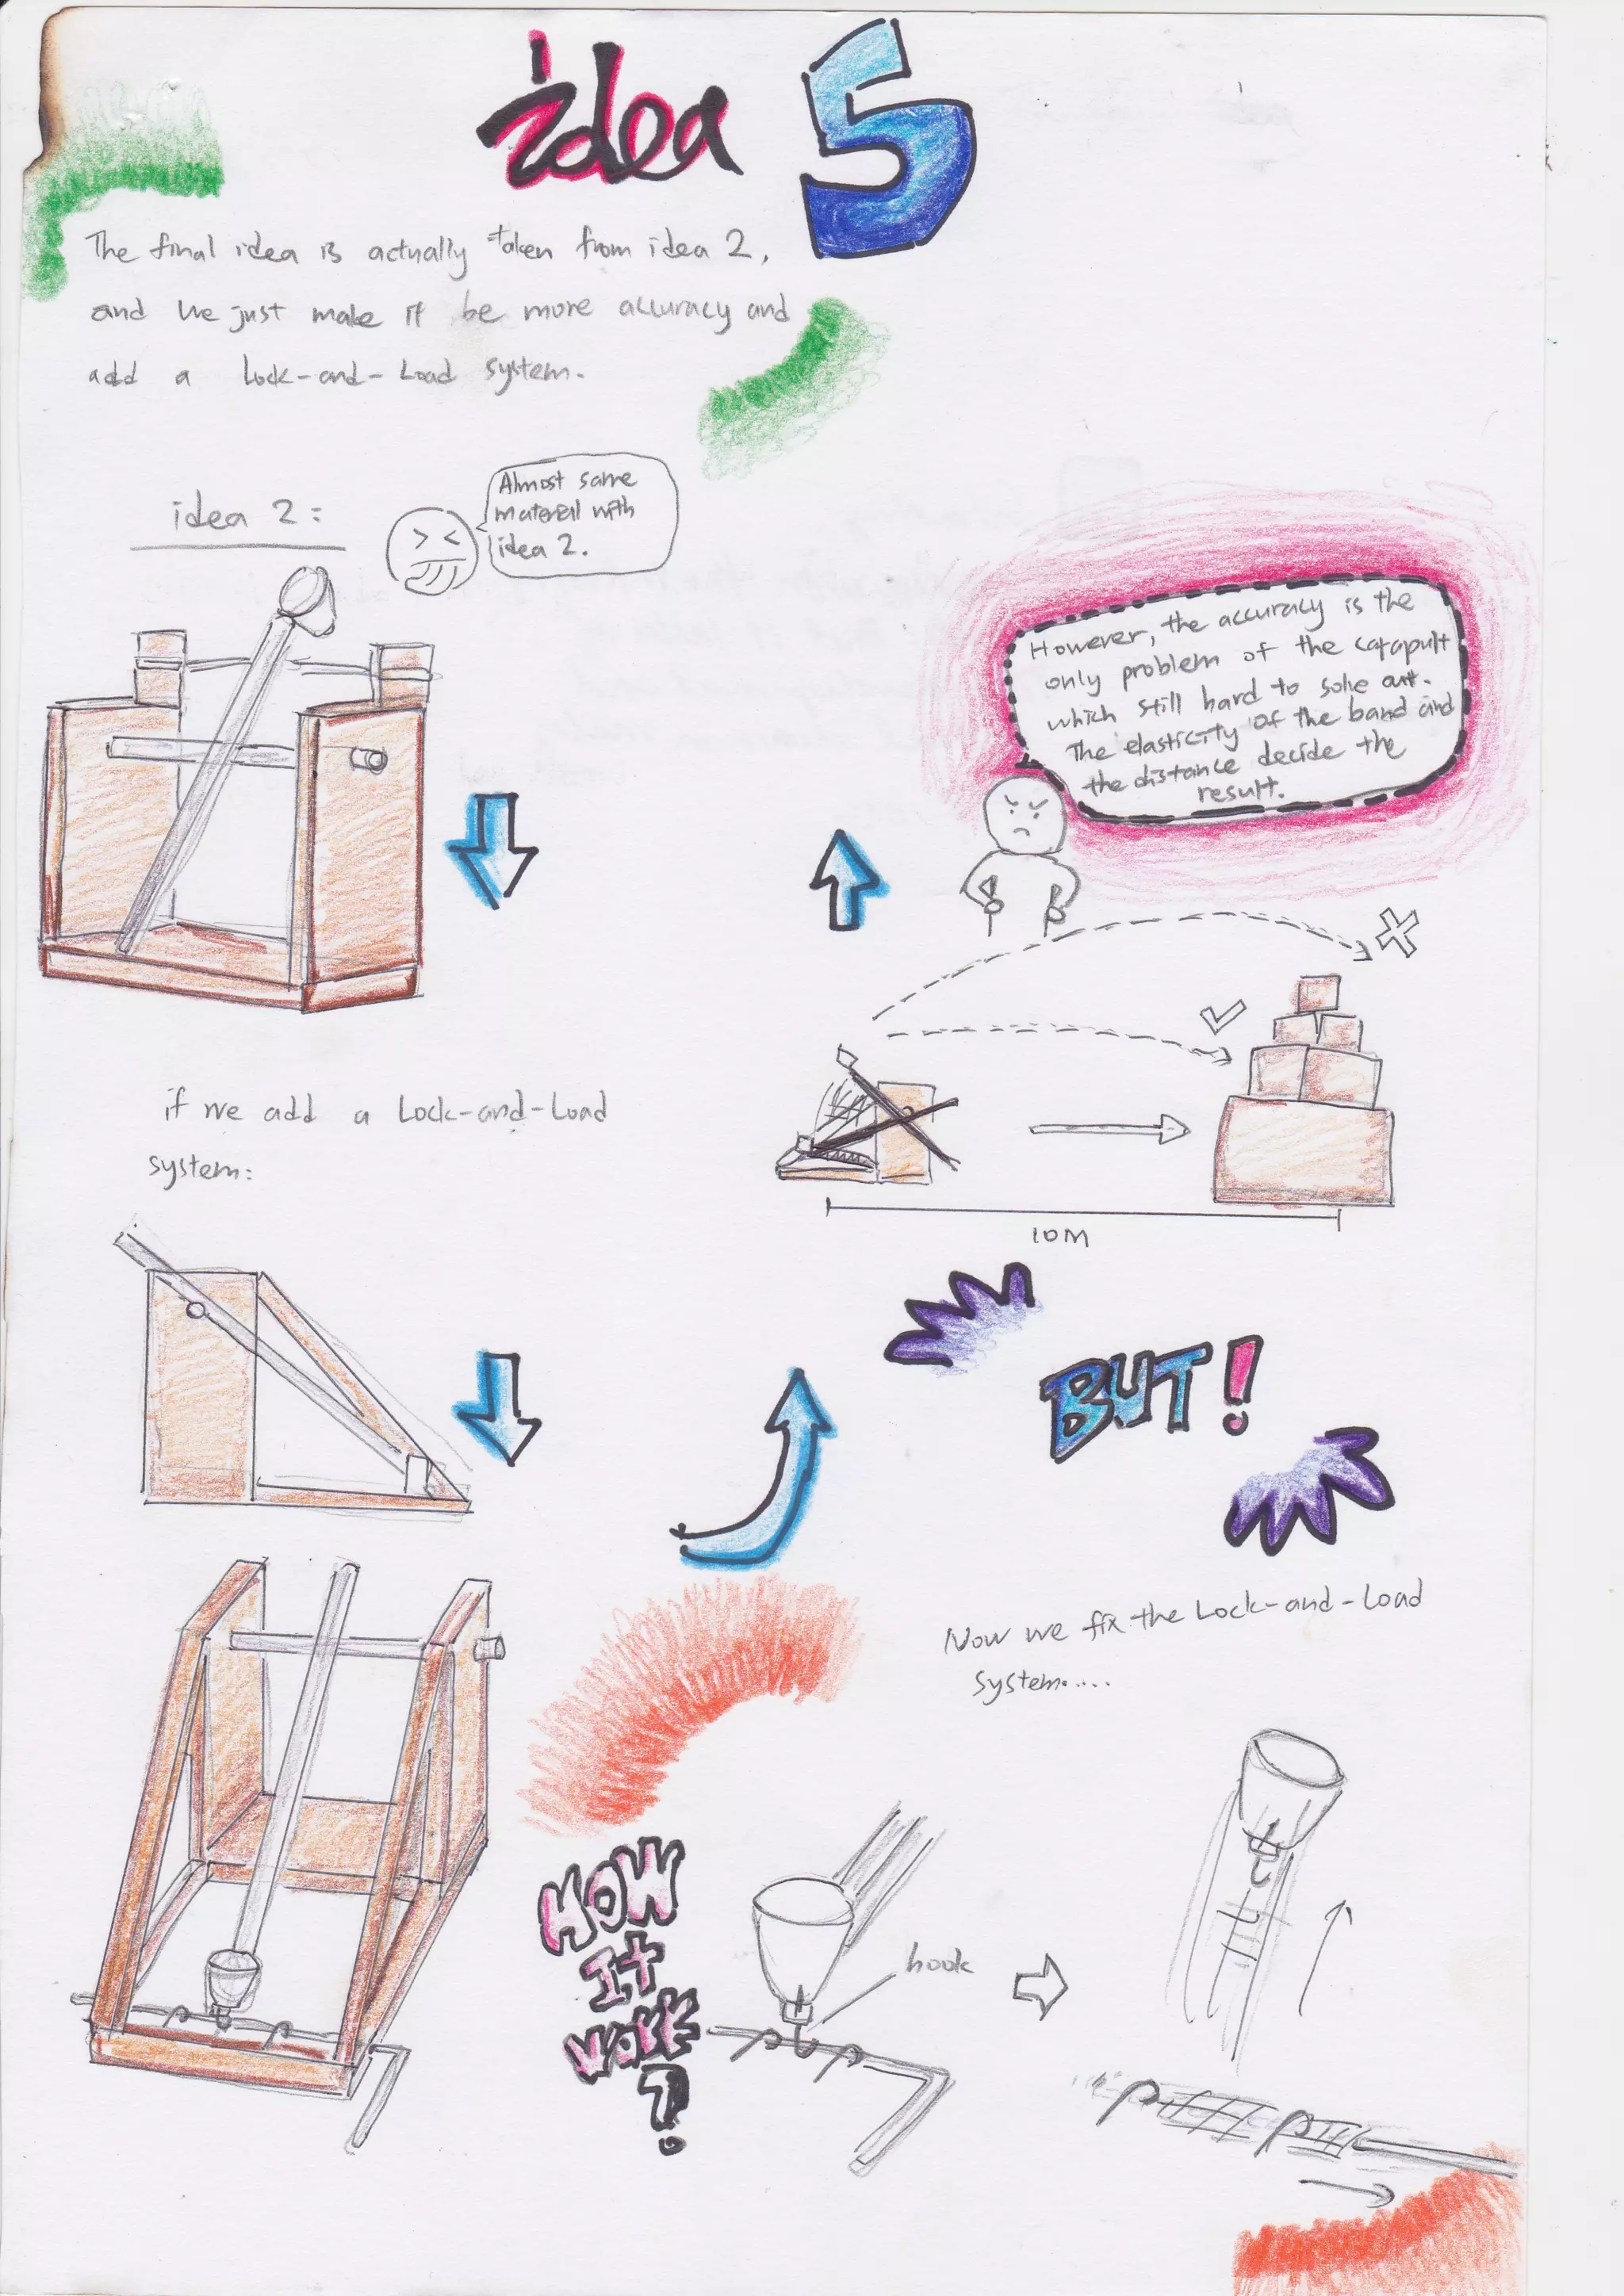 idea 5
The final idea is actually taken from idea 2,
and we just make it be more accuracy and
add a Lock-and-Load system.
idea 2:
Almost same
material with
idea 2.
if we add a Lock-and-Load
system:
However, the accuracy is the
only problem of the catapult
which still hard to solve out.
The elasticity of the band and
the distance decide the
result.
10M
BUT!
Now we fix the Lock-and-Load
system.....
HOW
IT
WORK
?
hook